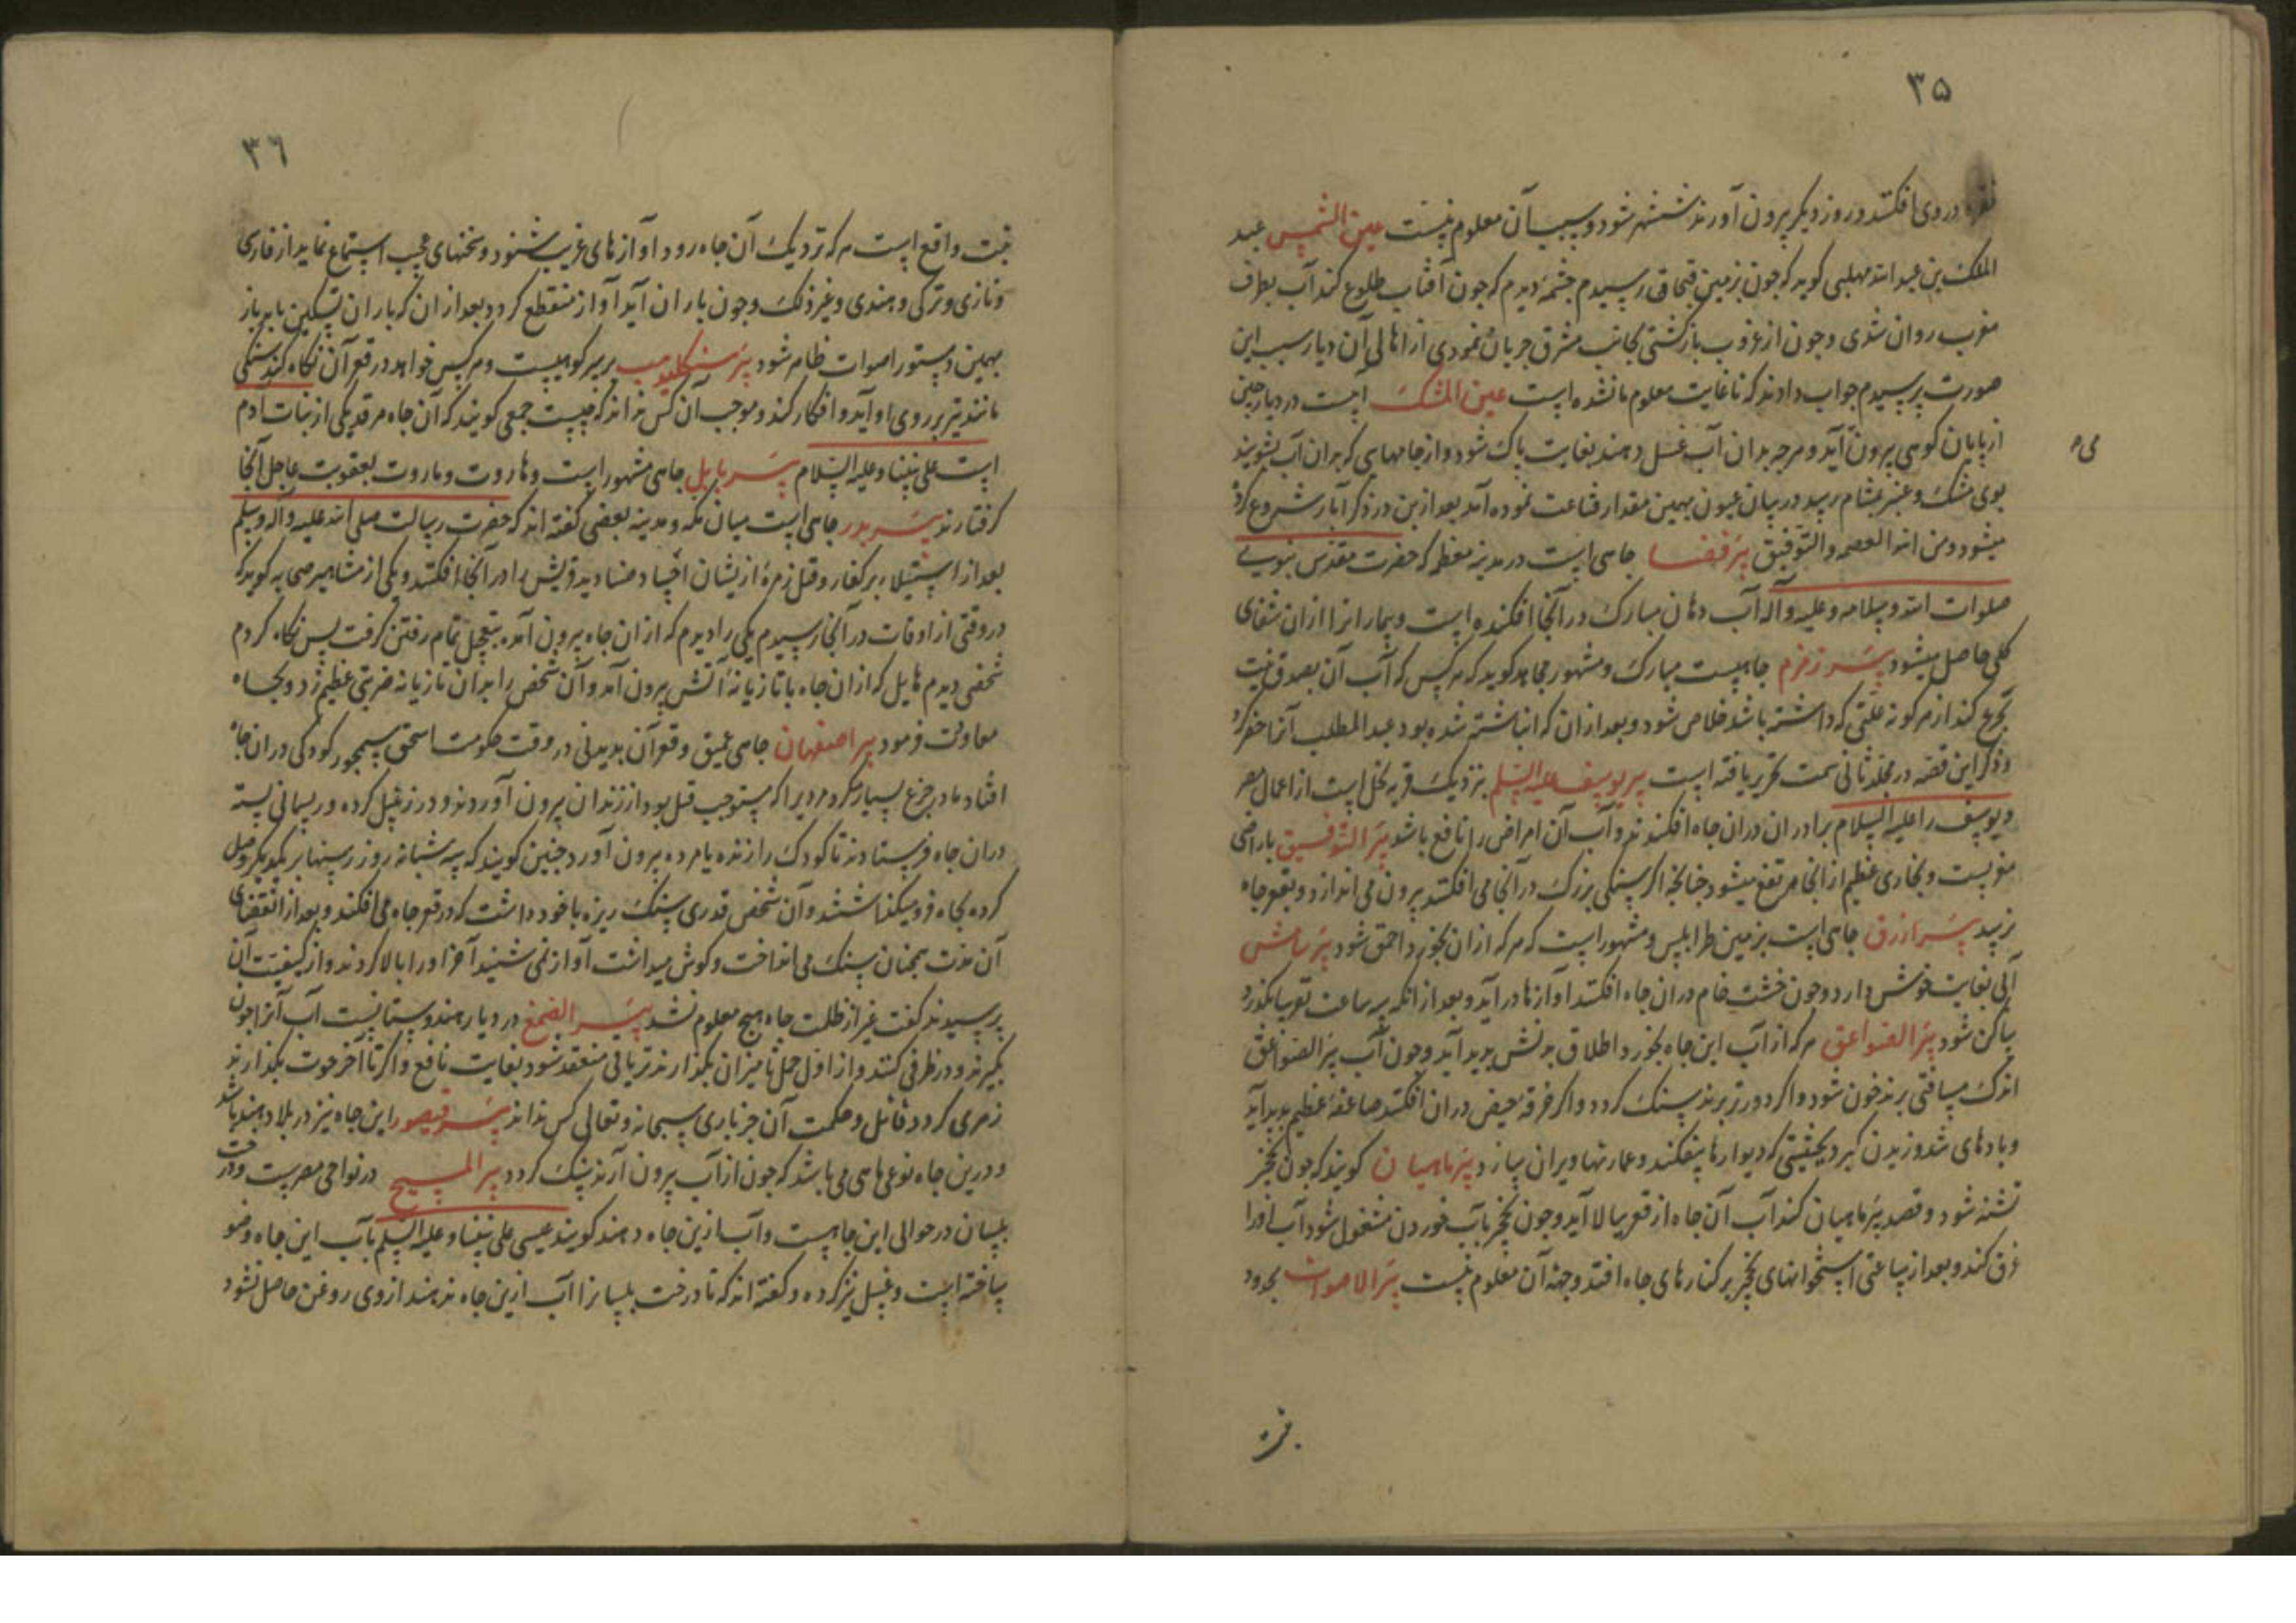 ۳۵
نقره در وی افکنند و روز دیگر بیرون آورند شوشه شود و سبب آن معلوم نیست عین الشمس عبد
الملک بن عبد الله مهلبی کوید که جون بزمین قبجاق رسیدم جشمۀ دیدم که جون آفتاب طلوع کند آب بطرف
مغرب روان شدی و جون از غروب بازکشتی بجانب مشرق جریان نمودی از اهالی آن دیار سبب این
صورت پرسیدم جواب دادند که تا غایت معلوم ما نشده است عین المشک است در دیار جین
از پایان کوهی بیرون آید و هرجه بدان آب غسل دهند بغایت پاک شود و از جامهایی که بدان آب بشویند
بوی مشک و عنبر بمشام رسد در بیان عیون بهمین مقدار قناعت نموده آمد بعد ازین در ذکر آبار شروع کرده
میشود و من الله العصمه و التوفیق بئر قضا جاهی است در مدینه معظمه که حضرت مقدس نبویی
صلوات الله و سلامه علیه و آله آب دهان مبارک در آنجا افکنده است و بیمارانرا از ان شفای
کلی حاصل میشود بئر زمزم جاهیست مبارک و مشهور مجاهد کوید که هر کس که آب آن بصدق نیت
تجرع کند از هر کونه علتی که داشته باشد خلاص شود و بعد از ان که انباشته شده بود عبد المطلب آنرا حفر کرد
و ذکر این قصه در مجلد ثانی سمت تحریر یافته است بیر یوسف علیه السلم نزدیک قریه نخل است از اعمال مصر
و یوسف را علیه السلام برادران دران جاه افکندند و آب آن امراض را نافع باشد بئر التوفیق باراضی
مغربست و بخاری عظیم از انجا مرتفع میشود جنانجه اکر سنکی بزرک در آنجا می افکنند بیرون می اندازد و بقعر جاه
نرسد بئر ازرق جاهی است بزمین طرابلس و مشهور است که هر که از ان بخورد احمق شود بئر
آبی بغایت خوش دارد و جون خشت خام دران جاه افکنند آوازها در آید و بعد از انکه سه ساعت تقریبا بکذرد
ساکن شود بئر الصواعق هر که از آب این جاه بخورد اطلاق بدنش پدید آید و جون آب بئر الصواعق
اندک مسافتی برند خون شود و اکر دورتر برند سنک کردد و اکر خرقۀ حیض دران افکنند صاعقۀ عظیم پدید آید
و بادهای تند وزیدن کیرد بحیثیتی که دیوارها بیفکند و عمارتها ویران سازد بئر ماهیان کویند که جون نخجیر
تشنه شود و قصد بئر ماهیان کند آب آن جاه از قعر ببالا آید و جون نخجیر بآب خوردن مشغول شود آب او را
غرق کند و بعد از ساعتی استخوانهای نخجیر بر کنارهای جاه افتد و جهة آن معلوم نیست بئر الاصوات بحدود
۳۶
تبت واقع است هر که نزدیک آن جاه رود آوازهای غریب شنود و سخنهای عجیب استماع نماید از فارسی
و تازی و ترکی و هندی و غیر ذلک و جون باران آید آواز منقطع کردد و بعد از ان که باران تسکین یابد باز
بهمین دستور اصوات ظاهر شود بئر بر سر کوهیست و هر کس خواهد در قعر آن نکاه کند سنکی
مانند تیر بر روی او آید و افکار کند و موجب آن کس نداند که جیست جمعی کویند که آن جاه مرقد یکی از بنات آدم
است علی نبینا و علیه السلام بئر بابل جاهی مشهور است و هاروت و ماروت بعقوبت عاجل آنجا
کرفتارند بئر بدر جاهی است میان مکه و مدینه بعضی کفته اند که حضرت رسالت صلی الله علیه و آله و سلم
بعد از استیلا بر کفار و قتل زمرۀ ازیشان اجساد صنادید قریش را در آنجا افکند و یکی از مشاهیر صحابه کوید که
در وقتی از اوقات در آنجا رسیدم یکی را دیدم که از ان جاه بیرون آمده بتعجیل تمام رفتن کرفت پس نکاه کردم
شخصی دیدم هایل که از ان جاه با تازیانۀ آتش بیرون آمد و آن شخص را بدان تازیانه ضربتی عظیم زد و بجاه
معاودت فرمود بیر اصفهان جاهی عمیق و قعر آن ندیدنی در وقت حکومت اسحق سیمجور کودکی دران جاه
افتاد مادر جزع بسیار کرد مردیرا که مستوجب قتل بود از زندان بیرون آوردند و در زنبیل کرده و ریسمانی بسته
دران جاه فرستادند تا کودک را زنده یا مرده بیرون آورد جنین کویند که سه شبانه روز رسنها بر یکدیکر وصل
کرده بجاه فرو میکذاشتند و آن شخص قدری سنک ریزه با خود داشت که در قعر جاه می افکند و بعد از انقضای
آن مدت همجنان سنک می انداخت و کوش میداشت آواز نمی شنید آخر او را بالا کردند و از کیفیت آن
پرسیدند کفت غیر از ظلمت جاه هیج معلوم نشد بئر در دیار هندوستانیست آب آنرا جون
بکیرند و در ظرفی کنند و از اول حمل تا میزان بکذارند تریاقی منعقد شود بغایت نافع و اکر تا آخر حوت بکذارند
زهری کردد قاتل و حکمت آن جز باری سبحانه و تعالی کس نداند بئر قیصور این جاه نیز در بلاد هند باشد
و درین جاه نوعی ماهی می باشد که جون از آب بیرون آرند سنک کردد بیر المسیح در نواحی مصرست و درخت
بلسان در حوالی این جاهیست و آب ازین جاه دهند کویند عیسی علی نبینا و علیه السلم بآب این جاه وضو
ساخته است و غسل نیز کرده و کفته اند که تا درخت بلسانرا آب ازین جاه ندهند از وی روغن حاصل نشود